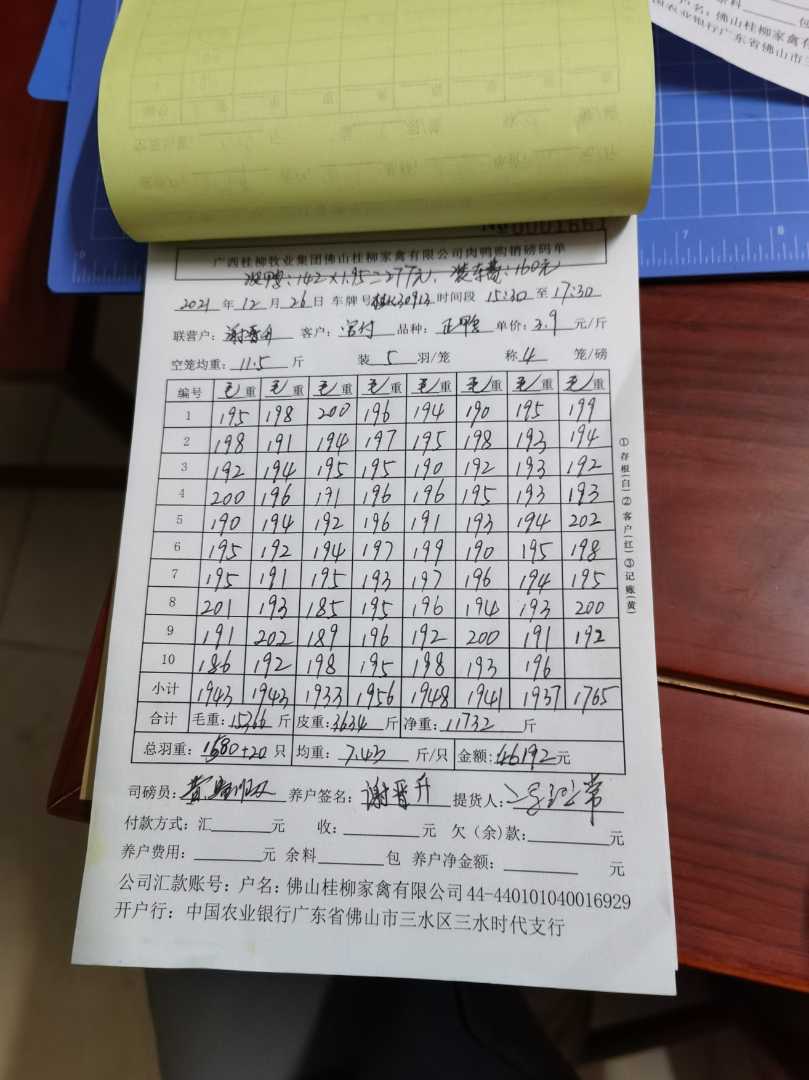 余料______包
户名：佛山桂柳家禽有
国农业银行广东省佛山市三
№ 0001661
广西桂柳牧业集团佛山桂柳家禽有限公司肉鸭购销磅码单
没鸭：142×1.95=277元. 装车费：160元
2021 年 12 月 26 日 车牌号 桂K30913 时间段 15:30 至 17:30
联营户：谢晋升 客户： 品种：正鸭 单价：3.9 元/斤
空笼均重：11.5 斤 装 5 羽/笼 称 4 笼/磅
编号 毛重 毛重 毛重 毛重 毛重 毛重 毛重 毛重
1 195 198 200 196 194 190 195 199
2 198 191 194 197 195 198 193 194
3 192 194 195 195 190 192 193 192
4 200 196 191 196 196 195 193 193
5 190 194 192 196 191 193 194 202
6 195 192 194 197 199 190 195 198
7 195 191 195 193 197 196 194 195
8 201 193 185 195 196 194 193 200
9 191 202 189 196 192 200 191 192
10 186 192 198 195 198 193 196
小计 1943 1943 1933 1956 1948 1941 1937 1765
合计 毛重：15366 斤 皮重：3634 斤 净重：11732 斤
总羽重：1580+20 只 均重：7.43 斤/只 金额：46192元
司磅员： 养户签名：谢晋升 提货人：
付款方式：汇______元 收：______元 欠（余）款：______元
养户费用：______元 余料______包 养户净金额：______元
公司汇款账号：户名：佛山桂柳家禽有限公司44-440101040016929
开户行：中国农业银行广东省佛山市三水区三水时代支行
①存根(白)②客户(红)③记账(黄)